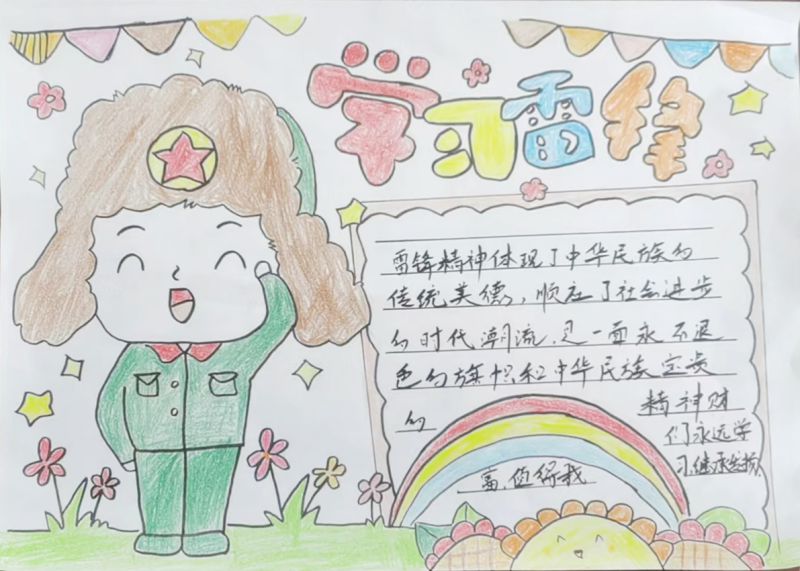 学习雷锋
雷锋精神体现了中华民族的
传统美德，顺应了社会进步
的时代潮流，是一面永不退
色的旗帜和中华民族宝贵
的 精神财
富，值得我 们永远学
习继承发扬.